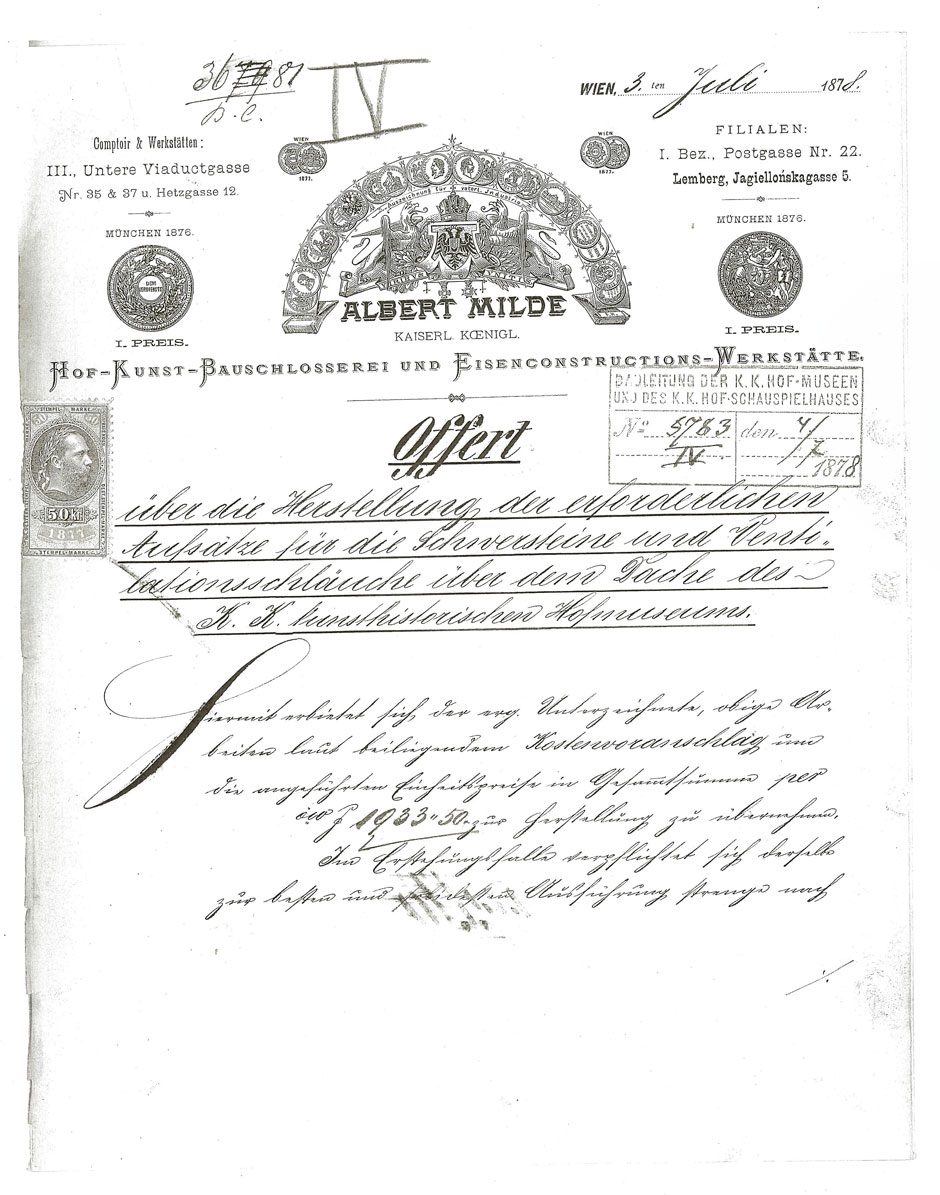 36 81
IV
WIEN, 3. ten Juli 1878.
Comptoir & Werkstätten:
III., Untere Viaductgasse
Nr. 35 & 37 u. Hetzgasse 12.
MÜNCHEN 1876.
I. PREIS.
WIEN
1873.
Auszeichnung für vaterl. Industrie
ALBERT MILDE
KAISERL. KŒNIGL.
WIEN
1873.
FILIALEN:
I. Bez., Postgasse Nr. 22.
Lemberg, Jagiellońskagasse 5.
MÜNCHEN 1876.
I. PREIS.
HOF-KUNST-BAUSCHLOSSEREI UND EISENCONSTRUCTIONS-WERKSTÄTTE.
BAULEITUNG DER K.K. HOF-MUSEEN
UND DES K.K. HOF-SCHAUSPIELHAUSES
No 5783 den 4/
IV /7
1878
STEMPEL-MARKE
50 kr
1877
STEMPEL-MARKE
Offert
über die Herstellung der erforderlichen
Aufsätze für die Schwersteine und Venti-
lationsschläuche über dem Dache des
K. K. kunsthistorischen Hofmuseums.
Hiermit erbietet sich der erg. Unterzeichnete, obige Ar-
beiten laut beiliegendem Kostenvoranschlag um
die angeführten Einheitspreise in Gesammtsumme per
öW f 1933"50 zur Herstellung zu übernehmen.
Im Erstehungsfalle verpflichtet sich derselbe
zur besten und solidesten Ausführung strenge nach
./.